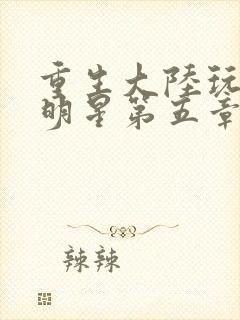 重生大陸玩
明星第五章
辣辣